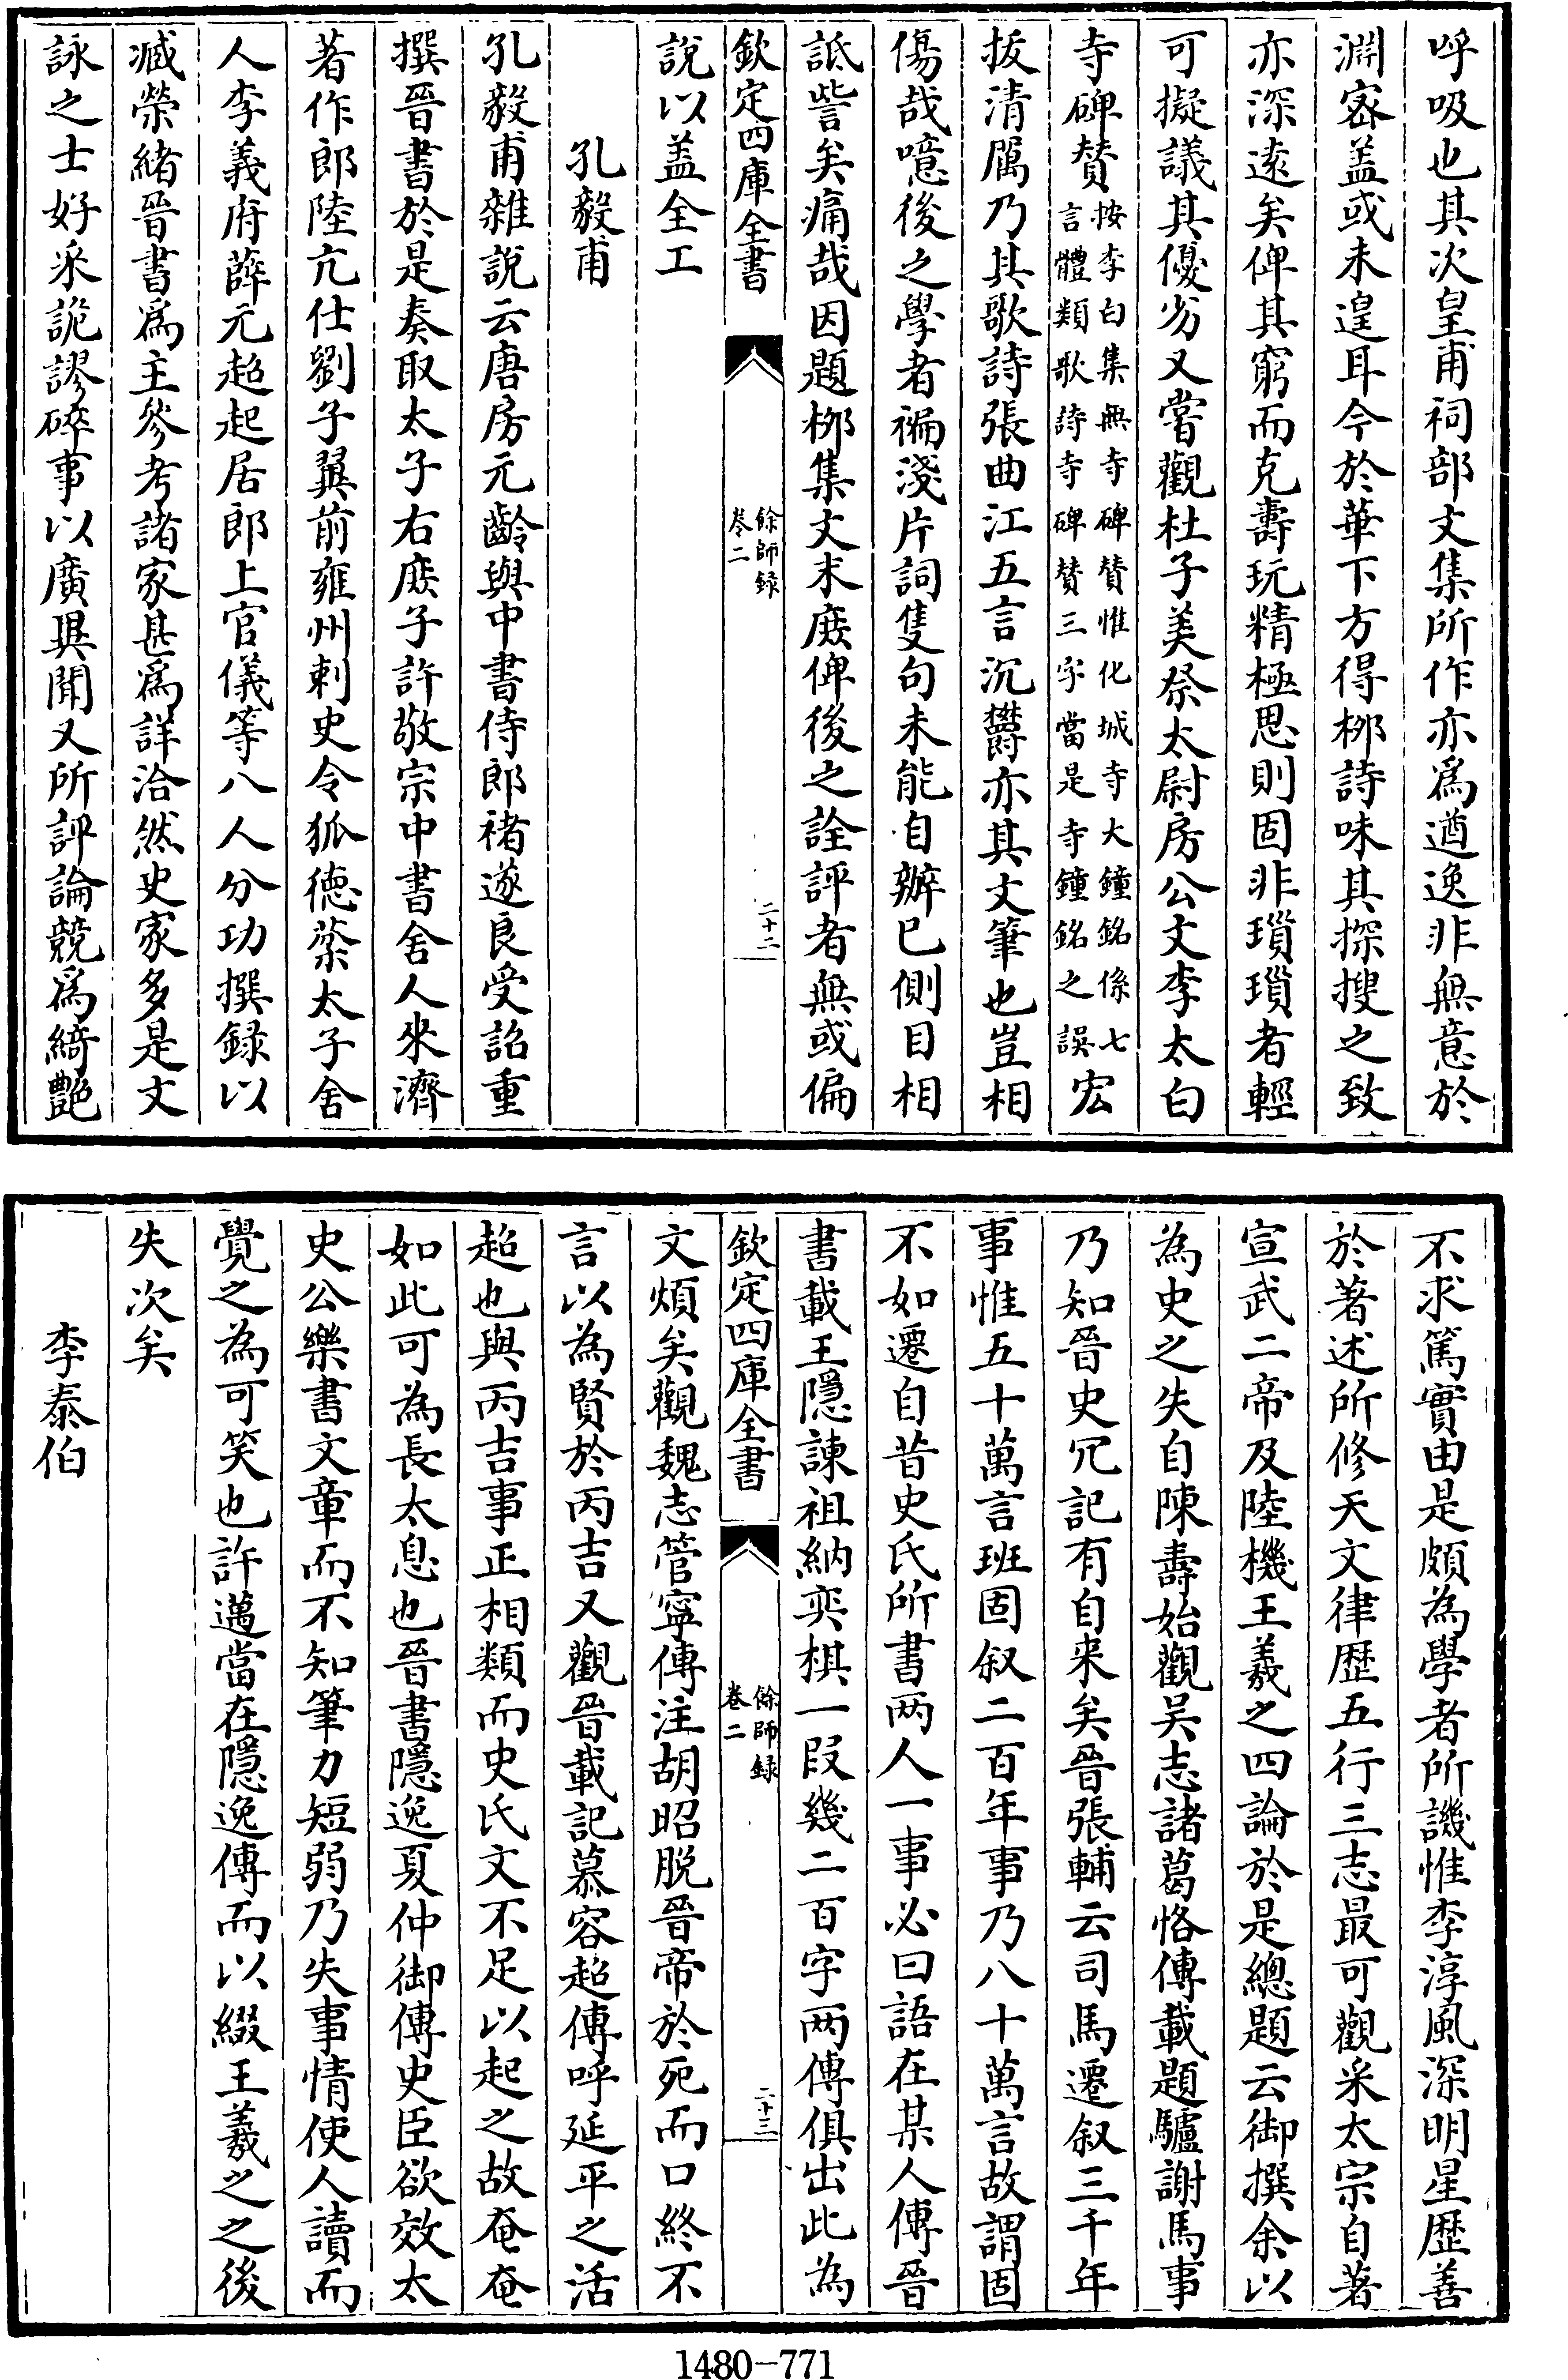 呼吸也其次皇甫祠部文集所作亦爲遒逸非無意於
淵宻盖或未遑耳今於華下方得栁詩味其探搜之致
亦深逺矣俾其窮而克壽玩精極思則固非瑣瑣者輕
可擬議其優劣又嘗觀杜子美祭太尉房公文李太白
寺碑賛按李白集無寺碑賛惟化城寺大鐘銘係七
言體類歌詩寺碑賛三字當是寺鐘銘之誤宏
拔清厲乃其歌詩張曲江五言沉欝亦其文筆也豈相
傷哉噫後之學者褊淺片詞隻句未能自辦已側目相
詆訾矣痛哉因題栁集文末庶俾後之詮評者無或偏
欽定四庫全書
餘師録
卷二
二十二
說以盖全工
孔毅甫
孔毅甫雜說云唐房元齡與中書侍郎褚遂良受詔重
撰晉書於是奏取太子右庶子許敬宗中書舍人來濟
著作郎陸亢仕劉子翼前雍州刺史令狐德棻太子舍
人李義府薛元超起居郎上官儀等八人分功撰録以
臧榮緒晉書爲主參考諸家甚爲詳洽然史家多是文
詠之士好采詭謬碎事以廣異聞又所評論競爲綺艷
不求篤實由是頗為學者所譏惟李淳風深明星歴善
於著述所修天文律歴五行三志最可觀采太宗自著
宣武二帝及陸機王羲之四論於是總題云御撰余以
為史之失自陳壽始觀吴志諸葛恪傳載題驢謝馬事
乃知晉史冗記有自来矣晉張輔云司馬遷叙三千年
事惟五十萬言班固叙二百年事乃八十萬言故謂固
不如遷自昔史氏所書两人一事必曰語在某人傳晉
書載王隱諫祖納奕棋一段幾二百字两傳俱出此為
欽定四庫全書
餘師録
卷二
二十三
文煩矣觀魏志管寧傳注胡昭脱晉帝於死而口終不
言以為賢於丙吉又觀晉載記慕容超傳呼延平之活
超也與丙吉事正相類而史氏文不足以起之故奄奄
如此可為長太息也晉書隱逸夏仲御傳史臣欲效太
史公樂書文章而不知筆力短弱乃失事情使人讀而
覺之為可笑也許邁當在隱逸傳而以綴王羲之之後
失次矣
李泰伯
1480-771